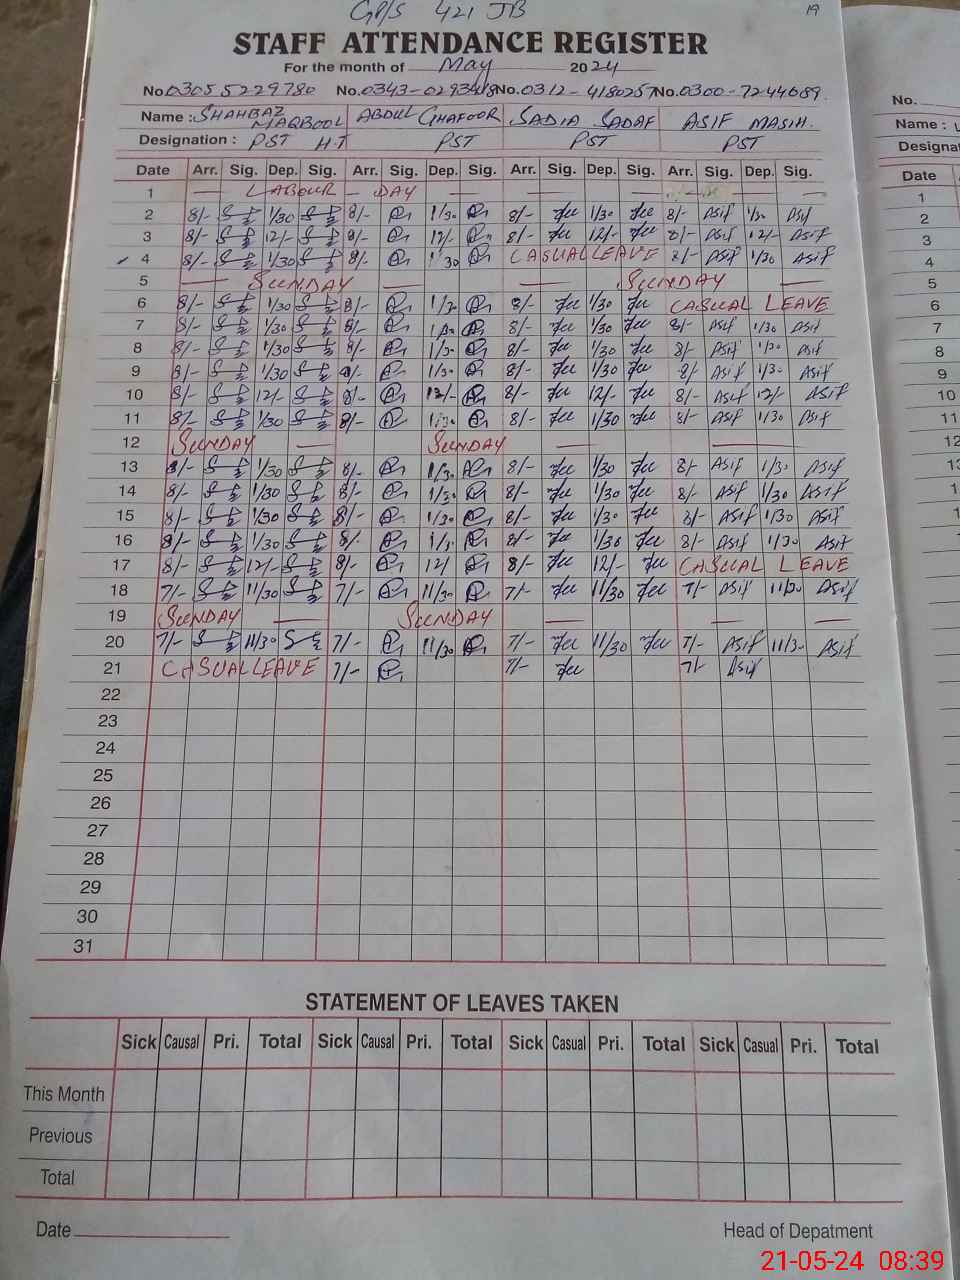 GP/S 421 JB
19
STAFF ATTENDANCE REGISTER
For the month of May 2024
No. 03055229780 No. 0343-0293418 No. 0312-4180257 No. 0300-7244689.
Name : SHAHBAZ MAQBOOL ABDUL GHAFOOR SADIA SADAF ASIF MASIH.
Designation : PST HT PST PST PST
Date Arr. Sig. Dep. Sig. Arr. Sig. Dep. Sig. Arr. Sig. Dep. Sig. Arr. Sig. Dep. Sig.
1 — LABOUR — DAY — — — —
2 8/- 1/30 8/- 1/30 8/- 1/30 8/- Asif 1/30 Asif
3 8/- 12/- 8/- 12/- 8/- 12/- 8/- Asif 12/- Asif
4 8/- 1/30 8/- 1/30 CASUAL LEAVE 8/- Asif 1/30 Asif
5 — SUNDAY — — SUNDAY —
6 8/- 1/30 8/- 1/30 8/- 1/30 CASUAL LEAVE
7 8/- 1/30 8/- 1/30 8/- 1/30 8/- Asif 1/30 Asif
8 8/- 1/30 8/- 1/30 8/- 1/30 8/- Asif 1/30 Asif
9 8/- 1/30 8/- 1/30 8/- 1/30 8/- Asif 1/30 Asif
10 8/- 12/- 8/- 12/- 8/- 12/- 8/- Asif 12/- Asif
11 8/- 1/30 8/- 1/30 8/- 1/30 8/- Asif 1/30 Asif
12 SUNDAY — SUNDAY — —
13 8/- 1/30 8/- 1/30 8/- 1/30 8/- Asif 1/30 Asif
14 8/- 1/30 8/- 1/30 8/- 1/30 8/- Asif 1/30 Asif
15 8/- 1/30 8/- 1/30 8/- 1/30 8/- Asif 1/30 Asif
16 8/- 1/30 8/- 1/30 8/- 1/30 8/- Asif 1/30 Asif
17 8/- 12/- 8/- 12/ 8/- 12/- CASUAL LEAVE
18 7/- 11/30 7/- 11/30 7/- 11/30 7/- Asif 11/30 Asif
19 SUNDAY — SUNDAY — — —
20 7/- 11/30 7/- 11/30 7/- 11/30 7/- Asif 11/30 Asif
21 CASUAL LEAVE 7/- 7/- 7/- Asif
22
23
24
25
26
27
28
29
30
31
STATEMENT OF LEAVES TAKEN
Sick Causal Pri. Total Sick Casual Pri. Total Sick Casual Pri. Total Sick Casual Pri. Total
This Month
Previous
Total
Date
Head of Depatment
21-05-24 08:39
No.
Name :
Designat
Date
1
2
3
4
5
6
7
8
9
10
11
12
13